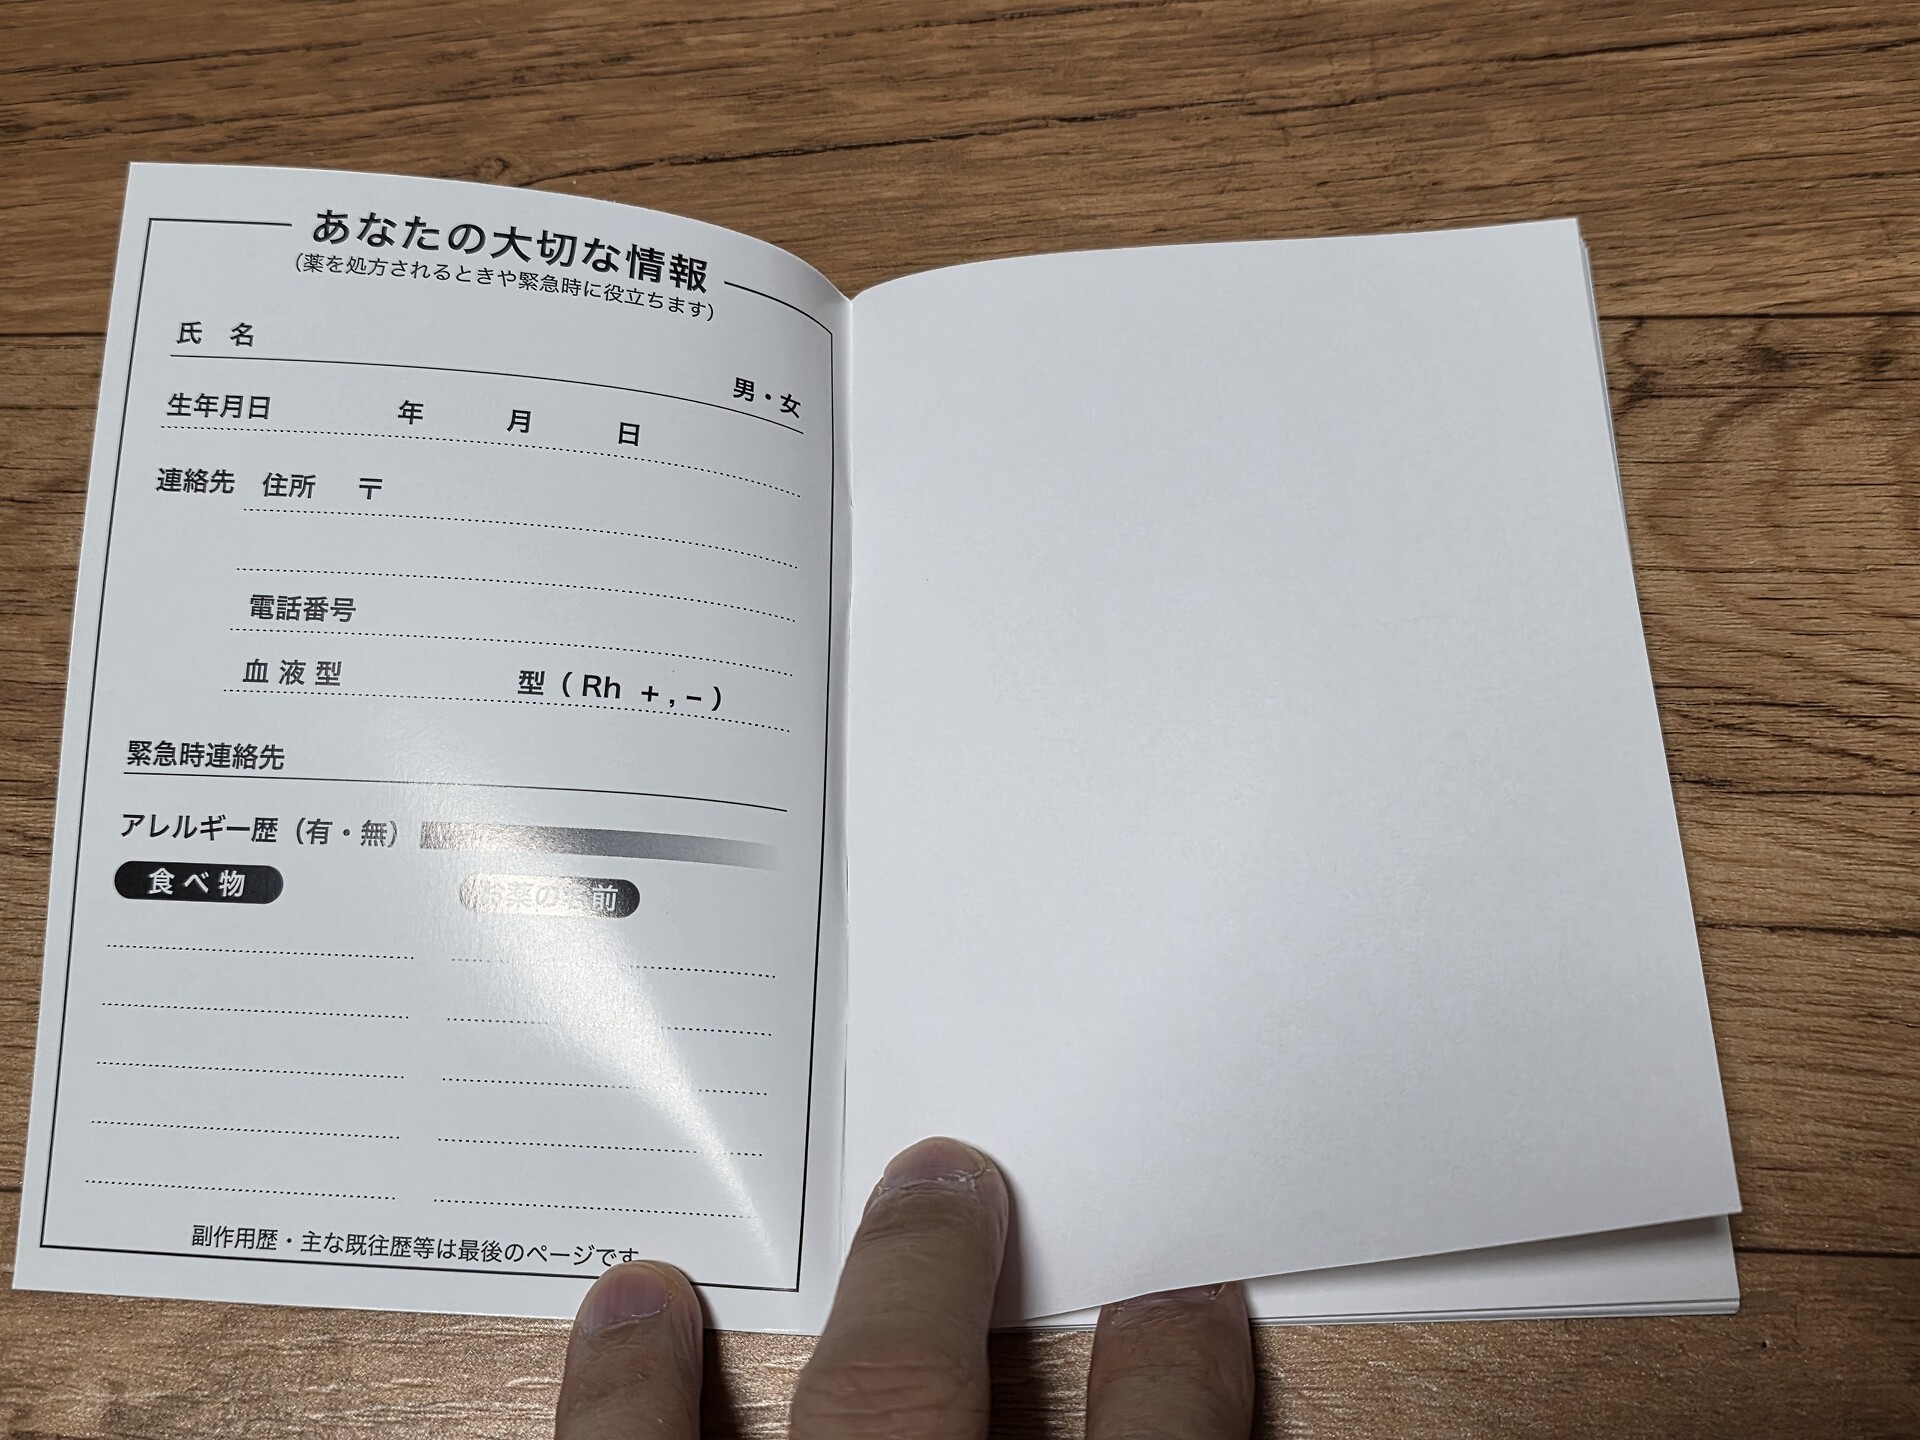 あなたの大切な情報
（薬を処方されるときや緊急時に役立ちます）
氏 名
男・女
生年月日 年 月 日
連絡先 住所 〒
電話番号
血液型 型（Rh +,−）
緊急時連絡先
アレルギー歴（有・無）
食べ物 お薬の名前
副作用歴・主な既往歴等は最後のページです